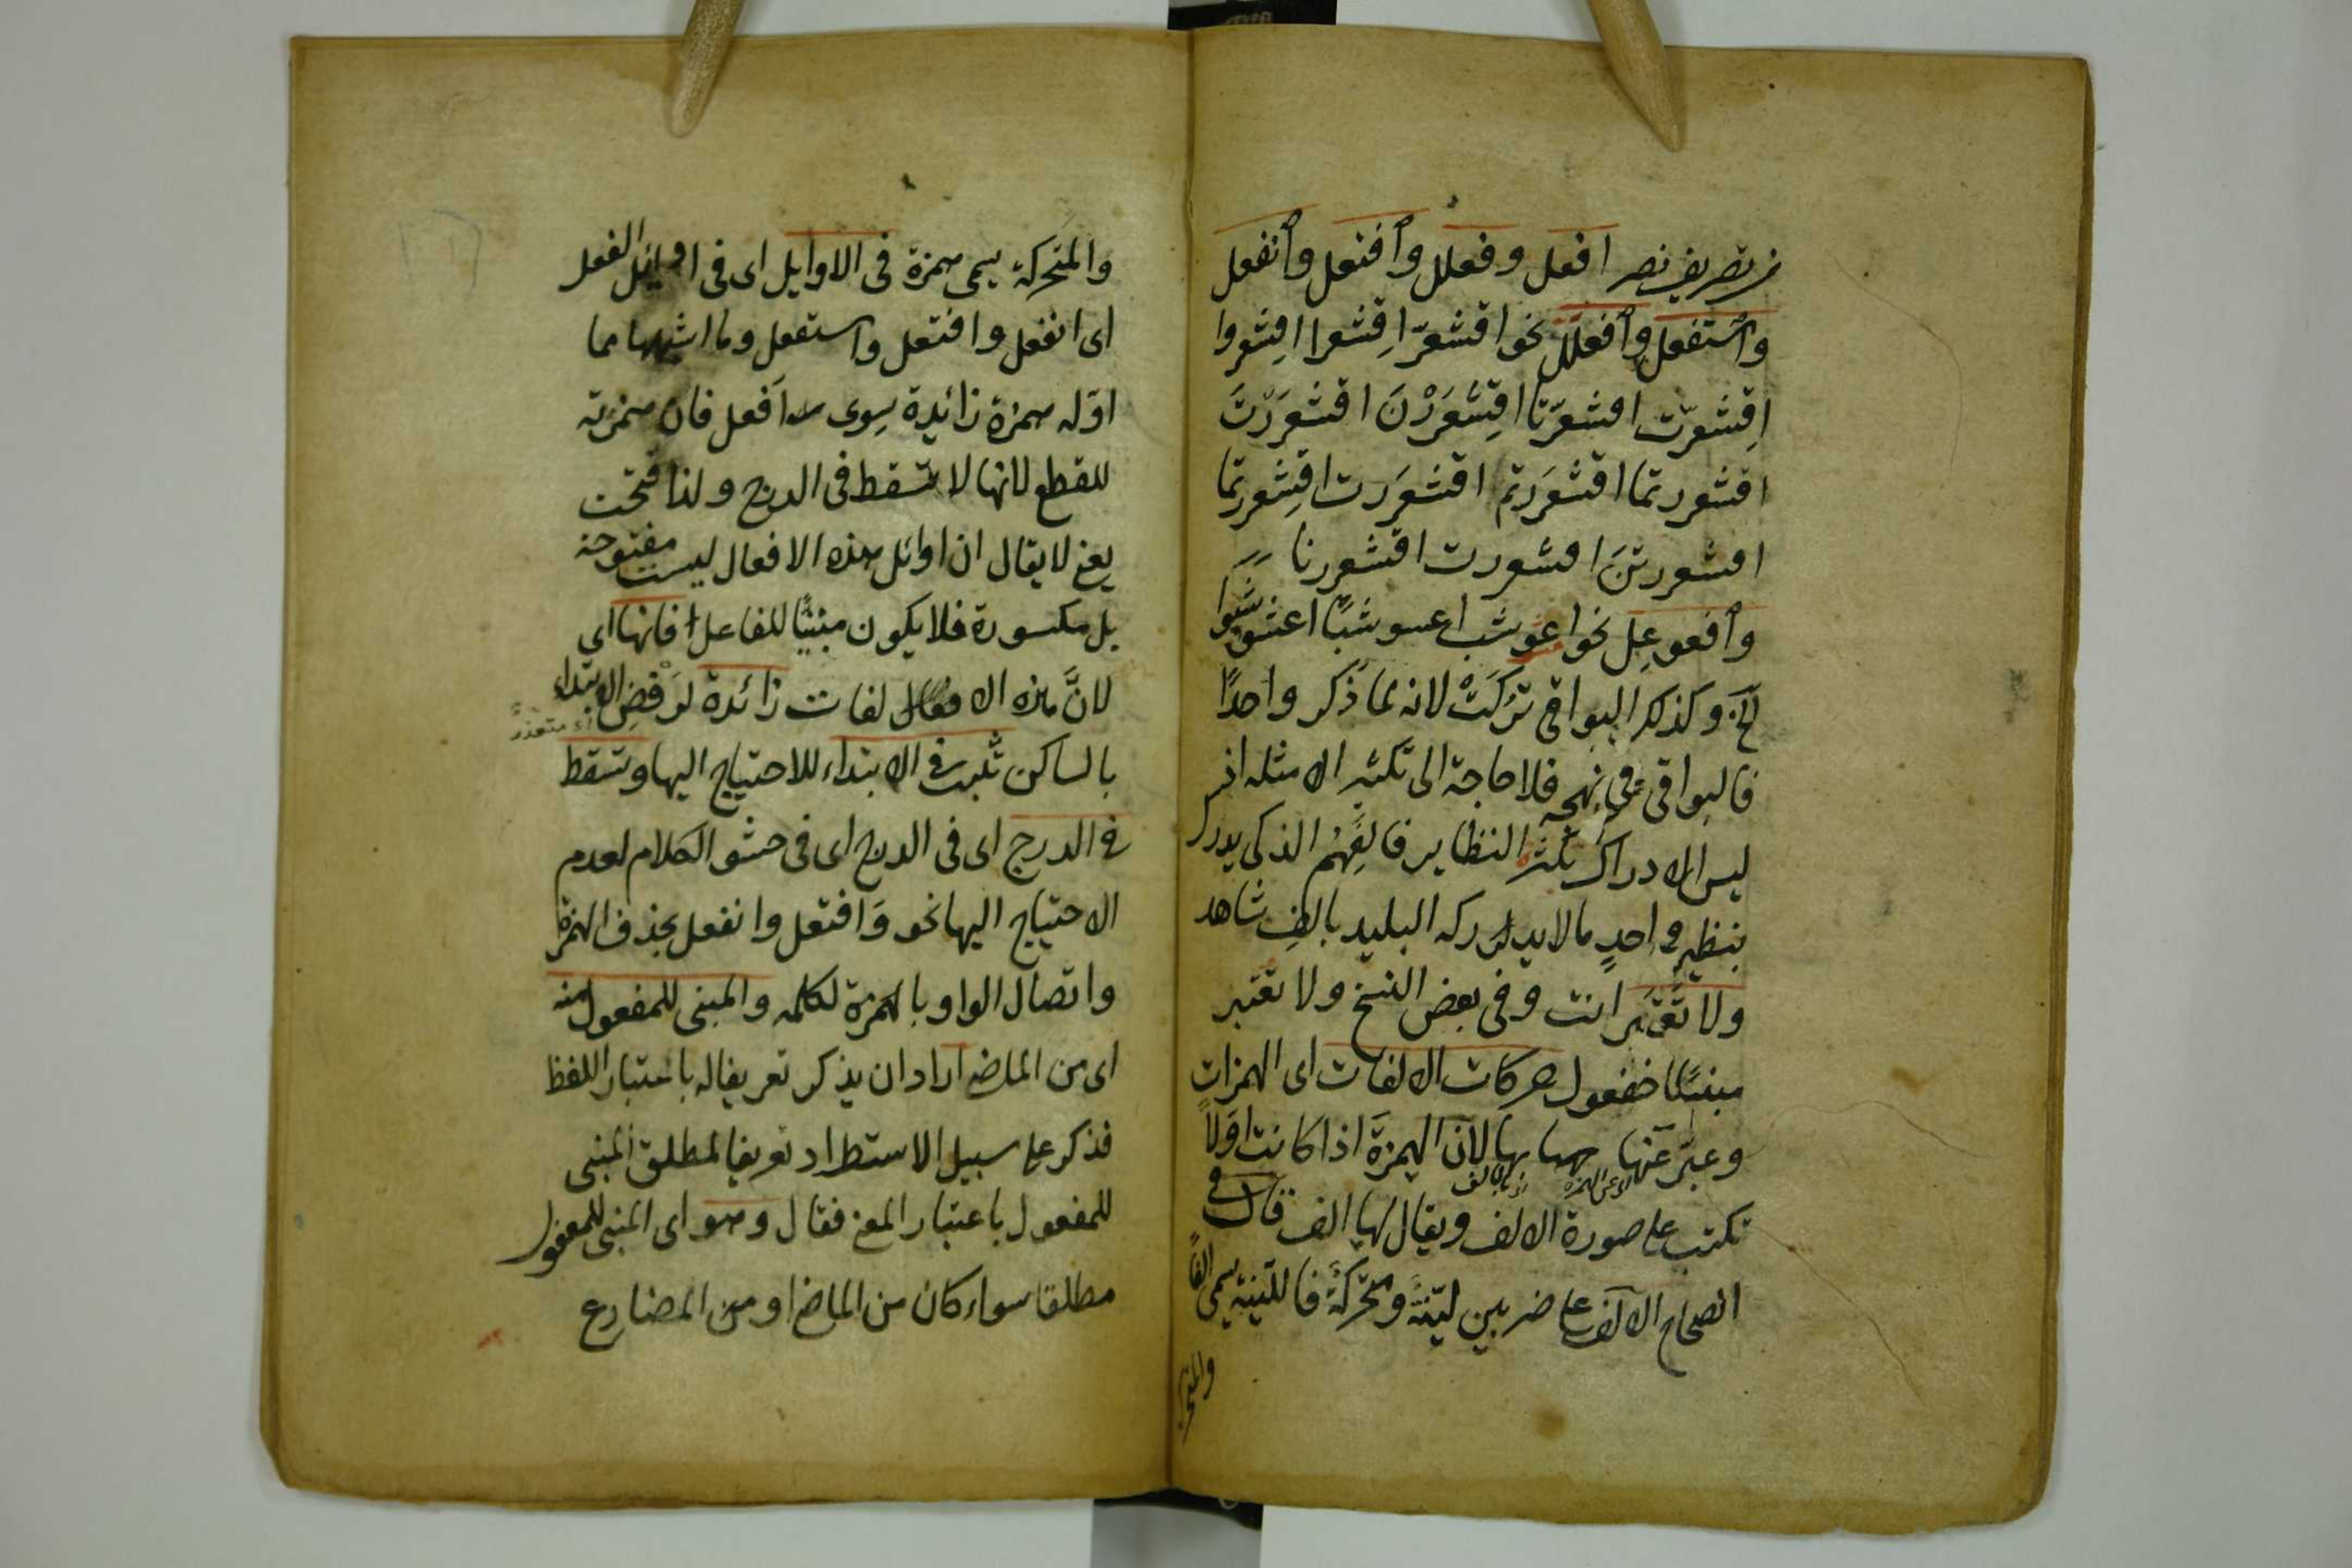 من تصريف نصر افعل وفعلل وافتعل وانفعل
واستفعل وافعلل نحو اقشعرّ اقشعرا اقشعروا
اقشعرّت اقشعرّتا اقشعررن اقشعررت
اقشعررتما اقشعررتم اقشعررت اقشعررتما
اقشعررتنّ اقشعررت اقشعررنا
وافعوعل نحو اعشوشب اعشوشبا اعشوشبوا
الخ وكذلك البواقى تركت لانه لما ذكر واحدًا
فالبواقى على نهجه فلا حاجة الى تكثير الامثله اذ
ليس الادراك بكثرة النظاير فالفهم الذكى يدرك
بنظير واحدٍ ما لا يدركه البليد بالف شاهد
ولا تعتبر انت وفى بعض النسخ ولا تعتبر
مبنيًا للمفعول حركات الالفات اى الهمزات
وعبّر عنها بها لانّ الهمزة اذا كانت اوّلًا
اى عن الهمزة
تكتب على صورة الالف ويقال لها الف قال فى
الصحاح الالف على ضربين ليّنة ومتحركة فالليّنة يسمى الفًا
والمتحركة
والمتحركة يسمى همزة فى الاوايل اى فى اوائل الفعل
اى انفعل وافتعل واستفعل وما اشبهها مما
اوّله همزة زائدة سوى افعل فان همزته
للقطع لانها لا تسقط فى الدرج ولذا فتحت
يعنى لا يقال ان اوائل هذه الافعال ليست مفتوحة
بل مكسورة فلا يكون مبنيًّا للفاعل فانها اى
لانّ هذه الافعال لفات زائدة لرفض الابتداء
متعذرٌ
بالساكن تثبت فى الابتداء للاحتياج اليها وتسقط
فى الدرج اى فى الدرج اى فى حشو الكلام لعدم
الاحتياج اليها نحو وافتعل وانفعل بحذف الهمزة
واتصال الواو بالهمزة لكلمه والمبنى للمفعول منه
اى من الماضى اراد ان يذكر تعريفا له باعتبار اللفظ
فذكر على سبيل الاستطراد تعريفا لمطلق المبنى
للمفعول باعتبار المعنى فقال وهو اى المبنى للمفعول
مطلقا سواء كان من الماضى او من المضارع